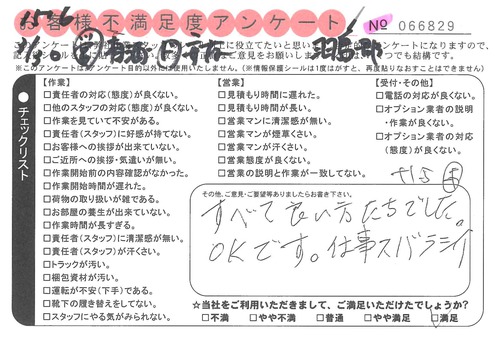 お客様不満足度アンケート
No 066829
【作業】
□責任者の対応(態度)が良くない。
□他のスタッフの対応(態度)が良くない。
□作業を見ていて不安がある。
□責任者(スタッフ)に好感が持てない。
□お客様への挨拶が出来ていない。
□ご近所への挨拶・気遣いが無い。
□作業開始前の内容確認がなかった。
□作業開始時間が遅れた。
□荷物の取り扱いが雑である。
□お部屋の養生が出来ていない。
□作業時間が長すぎる。
□責任者(スタッフ)に清潔感が無い。
□責任者(スタッフ)が汗くさい。
□トラックが汚い。
□梱包資材が汚い。
□運転が不安(下手)である。
□靴下の履き替えをしてない。
□スタッフにやる気がみられない。
【営業】
□見積もり時間に遅れた。
□見積もり時間が長い。
□営業マンに清潔感が無い。
□営業マンが煙草くさい。
□営業マンが汗くさい。
□営業態度が良くない。
□営業の説明と作業が一致してない。
【受付・その他】
□電話の対応が良くない。
□オプション業者の説明
・作業が良くない。
□オプション業者の対応
(態度)が良くない。
●チェックリスト
その他、ご意見・ご要望等ありましたらお書き下さい。
すべて良い方たちでした。
OKです。仕事スバラシイ
☆当社をご利用いただきまして、ご満足いただけたでしょうか?
□不満 □やや不満 □普通 □やや満足 □満足